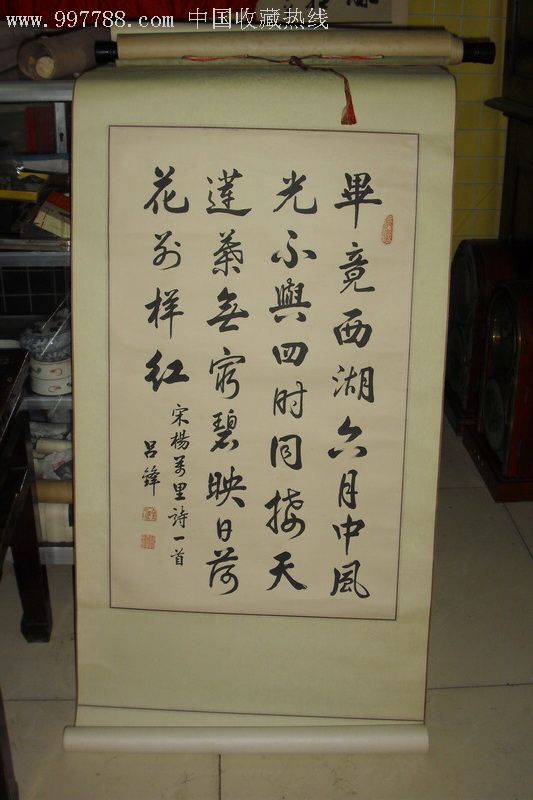 www.997788.com 中国收藏热线
畢竟西湖六月中風
光不與四时同接天
蓮葉無窮碧映日荷
花别样红
宋楊萬里詩一首
吕鋒